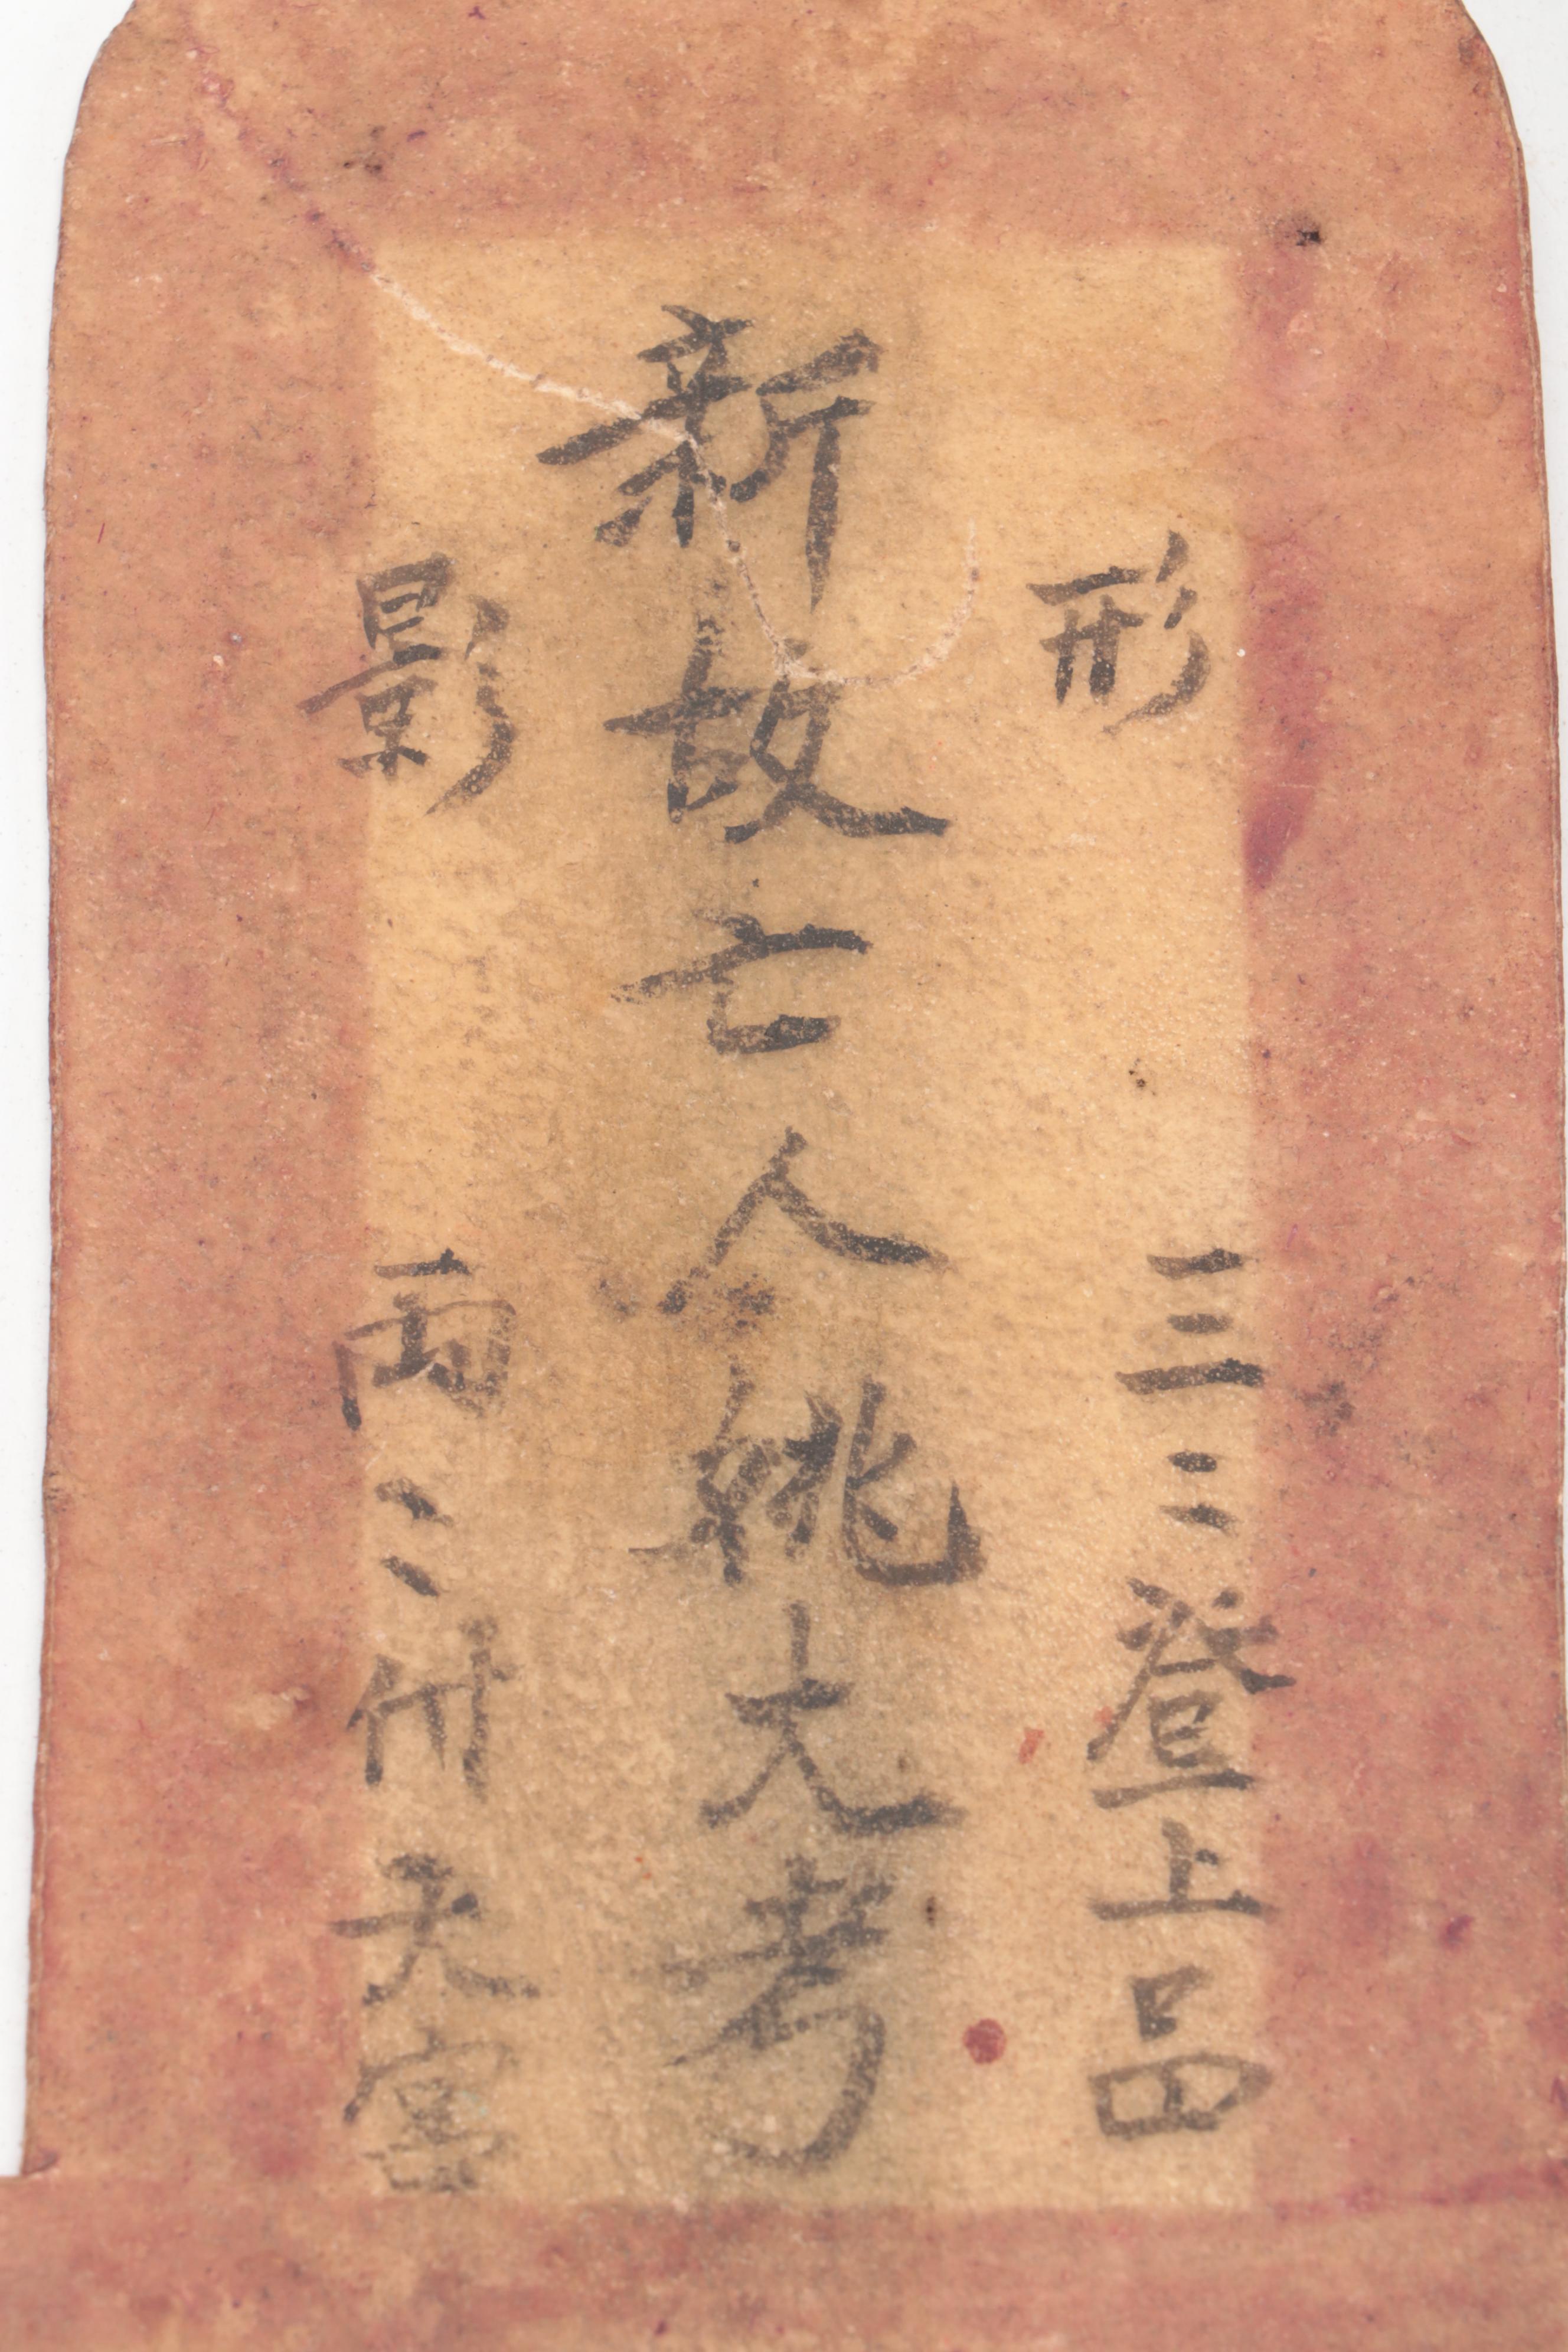 形 三〻登上品
新故亡人姚大考
影 両〻付天宮